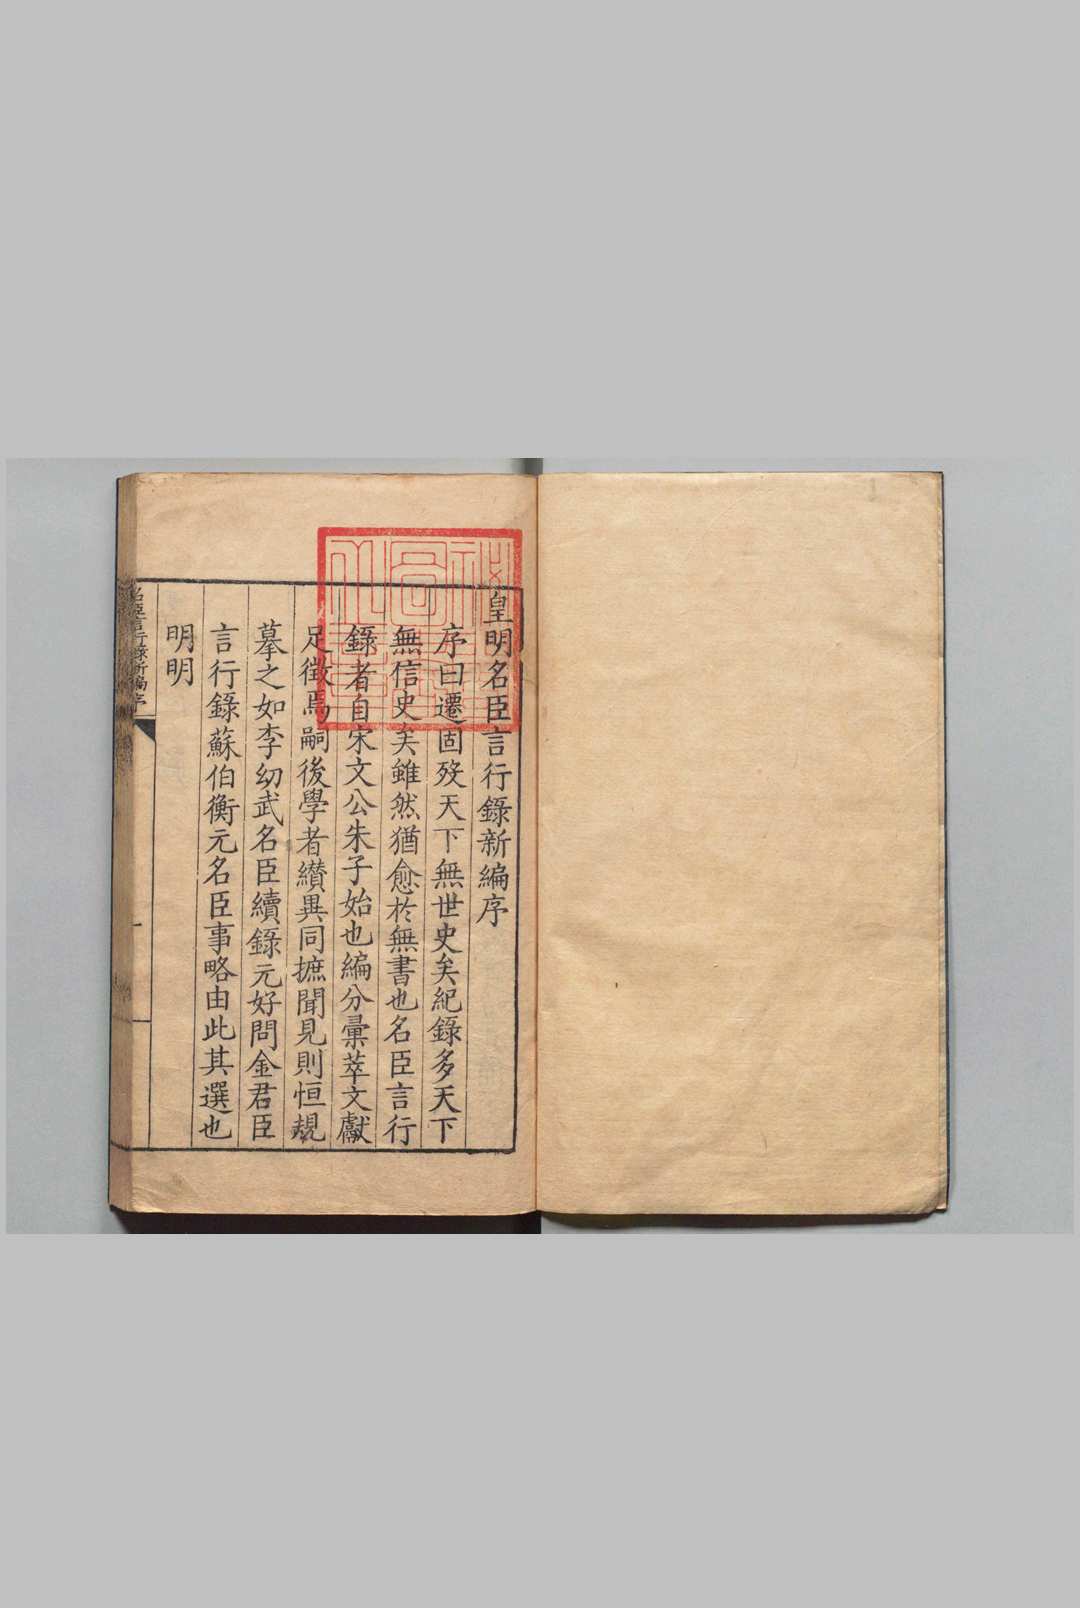 皇明名臣言行錄新編序
序曰遷固歿天下無世史矣紀錄多天下
無信史矣雖然猶愈於無書也名臣言行
錄者自宋文公朱子始也編分彙萃文獻
足徵焉嗣後學者纘異同摭聞見則恒規
摹之如李幼武名臣續錄元好問金君臣
言行錄蘇伯衡元名臣事略由此其選也
明明
名臣言行錄新編序